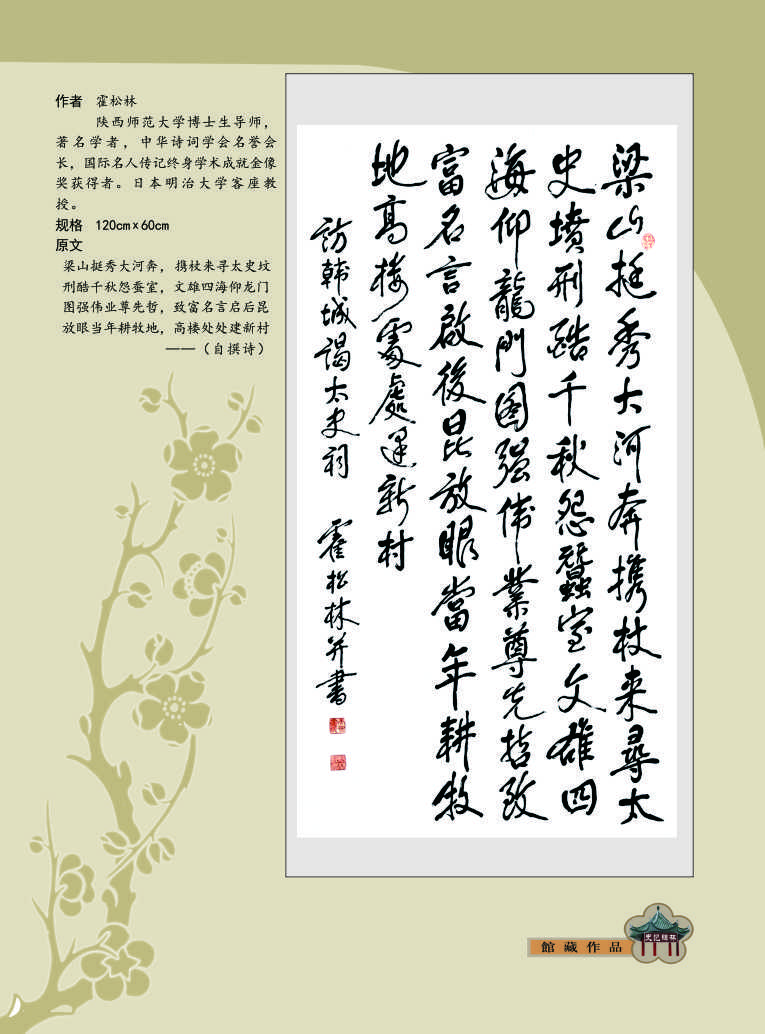 作者 霍松林
陕西师范大学博士生导师，
著名学者，中华诗词学会名誉会
长，国际名人传记终身学术成就金像
奖获得者。日本明治大学客座教
授。
规格 120cm×60cm
原文
梁山挺秀大河奔，携杖来寻太史坟
刑酷千秋怨蚕室，文雄四海仰龙门
图强伟业尊先哲，致富名言启后昆
放眼当年耕牧地，高楼处处建新村
——（自撰诗）
梁山挺秀大河奔携杖来尋太
史墳刑酷千秋怨蠶室文雄四
海仰龍門图强伟業尊先哲致
富名言啟後昆放眼當年耕牧
地高楼處處建新村
訪韩城谒太史祠 霍松林并書
館藏作品
史记碑林